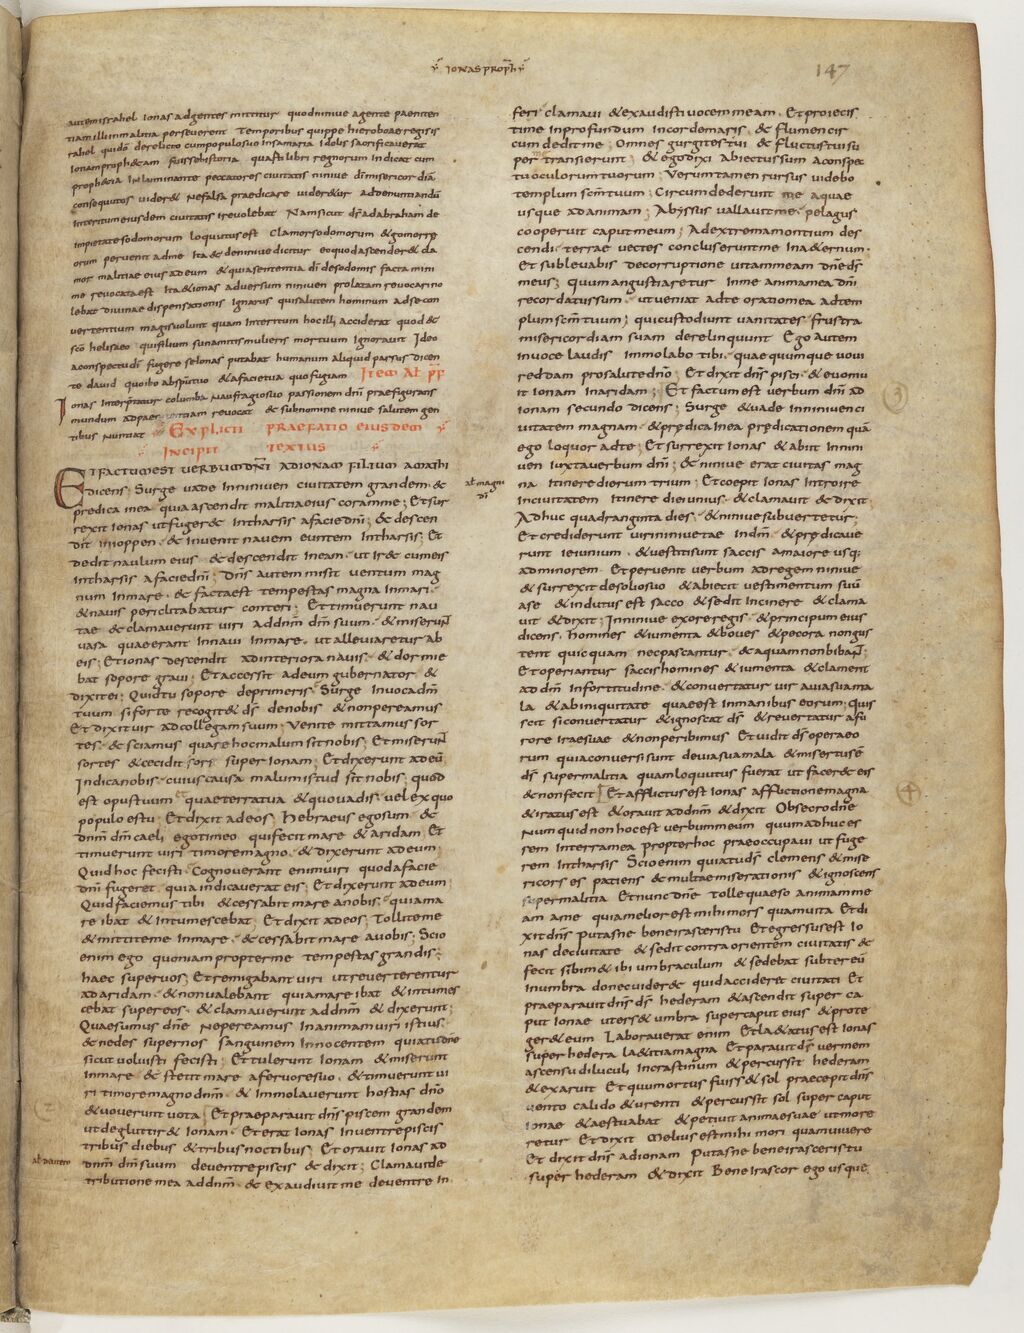 IONAS PROPH
147
autem israhel Ionas ad gentes mittitur quod ninive agente paeniten
tiam illi in malitia perseverent Temporibus quippe hieroboae regis is
rahel quidē derelicto cum populo suo In samaria Idolis sacrificaverat
Ionam prophetam fuisse historia quasi libri regnorum Indicat cum
prophetia In luminante peccatores civitatis ninive dī misericordiā
consequutos videret Ne falsa praedicare videretur ad denuntiandū
Interitum eiusdem civitatis ire volebat Nam sicut dn̄s ad abraham de
Impietate sodomorum loquutus est Clamor sodomorum et gomorre
orum pervenit ad me Ita et de ninive dicitur eo quod ascenderet cla
mor malitiae eius ad eum et quia sententia dī de sodomis facta mini
me revocata est Ita et ionas adversum niniven prolatam revocari no
lebat divinae dispensationis Ignarus qui salutem hominum ad se con
vertentium magis volunt quam Interitum hoc illi acciderat quod et
sc̄o helisaeo qui filium sunamitis mulieris mortuum Ignoravit Ideo
a conspectu dī fugere se Ionas putabat humanum aliquid passus dicen
te david quo ibo ab spū tuo et a facie tua quo fugiam Item Al pr̄f
Ionas Interpretatur columba Naufragio suo passionem dn̄i praefigurans
mundum ad paenitentiam revocat et sub nomine ninive salutem gen
tibus Nuntiat Explicit praefatio eiusdem
Incipit textus
Et factum est verbum dn̄i ad ionam filium amathi
dicens; Surge vade In niniven civitatem grandem et
predica In ea quia ascendit malitia eius coram me; Et sur
rexit Ionas ut fugeret In tharsis a facie dn̄i; et descen
dit in ioppen et Invenit navem euntem In tharsis; Et
dedit naulum eius et descendit In eam ut Iret cum eis
In tharsis a facie dn̄i; Dn̄s autem misit ventum mag
num In mare et facta est tempestas magna In mari
et navis periclitabatur conteri Et timuerunt nau
tae et clamaverunt viri ad dn̄m dm̄ suum et miserunt
vasa quae erant In navi In mare ut alleviaretur ab
eis; Et ionas descendit ad interiora navis et dormie
bat sopore gravi; Et accessit ad eum gubernator et
dixit ei; Quid tu sopore deprimeris Surge Invoca dm̄
tuum si forte recogitet ds̄ de nobis et non pereamus
Et dixit vir ad collegam suum; Venite mittamus sor
tes et sciamus quare hoc malum sit nobis; Et miserunt
sortes et cecidit sors super Ionam; Et dixerunt ad eū
Indica nobis cuius causa malum istud sit nobis quod
est opus tuum quae terra tua et quo vadis vel ex quo
populo es tu; Et dixit ad eos; Hebraeus ego sum et
dn̄m dm̄ caeli ego timeo qui fecit mare et aridam Et
timuerunt viri timore magno et dixerunt ad eum
Quid hoc fecisti Cognoverant enim viri quod a facie
dn̄i fugeret quia indicaverat eis; Et dixerunt ad eum
Quid faciemus tibi et cessabit mare a nobis quia ma
re ibat et Intumescebat Et dixit ad eos; Tollite me
et mittite me In mare et cessabit mare a vobis; Scio
enim ego quoniam propter me tempestas grandis
haec super vos; Et remigabant viri ut reverterentur
ad aridam et non valebant quia mare ibat et intumes
cebat super eos et clamaverunt ad dn̄m et dixerunt;
Quaesumus dn̄e Ne pereamus In anima viri istius
et ne des super nos sanguinem Innocentem quia tu dn̄e
sicut voluisti fecisti; Et tulerunt Ionam et miserunt
In mare et stetit mare a fervore suo et timuerunt vi
ri timore magno dn̄m et Immolaverunt hostias dn̄o
et voverunt vota; Et praeparavit dn̄s piscem grandem
ut degluttiret Ionam Et erat Ionas In ventre piscis
tribus diebus et tribus noctibus Et oravit Ionas ad
dn̄m dm̄ suum de ventre piscis et dixit; Clamavi de
tributione mea ad dn̄m et exaudivit me de ventre In
2
al magni
dī
feri clamavi et exaudisti vocem meam Et proiecis
ti me In profundum In corde maris et flumen cir
cumdedit me; Omnes gurgites tui et fluctus tui su
per me transierunt; et ego dixi Abiectus sum a conspec
tu oculorum tuorum; Verumtamen rursus videbo
templum sc̄m tuum; Circumdederunt me aquae
usque ad animam; Abyssus vallavit me pelagus
cooperuit caput meum; Ad extrema montium des
cendi terrae vectes concluserunt me In aeternum
Et sublevabis de corruptione vitam meam dn̄e ds̄
meus; quum angustiaretur In me anima mea dn̄i
recordatus sum ut veniat ad te oratio mea ad tem
plum sc̄m tuum; qui custodiunt vanitates frustra
misericordiam suam derelinquunt Ego autem
in voce laudis Immolabo tibi quaequumque vovi
reddam pro salute dn̄o; Et dixit dn̄s pisci et evomu
it Ionam In aridam; Et factum est verbum dn̄i ad
Ionam secundo dicens; Surge et vade In niniven ci
vitatem magnam et predica In ea predicationem quā
ego loquor ad te; Et surrexit Ionas et abiit In nini
ven iuxta verbum dn̄i; et ninive erat civitas mag
na Itinere dierum trium; Et coepit Ionas Introire
In civitatem Itinere diei unius et clamavit et dixit
Adhuc quadraginta dies et ninive subvertetur;
Et crediderunt viri ninivetae In dm̄ et predicave
runt ieiunium et vestiti sunt saccis a maiore usq;
ad minorem Et pervenit verbum ad regem ninive
et surrexit de solio suo et abiecit vestimentum suū
a se et indutus est sacco et sedit In cinere et clama
vit et dixit; In ninive ex ore regis et principum eius
dicens; Homines et iumenta et boves et pecora non gus
tent quicquam nec pascantur et aquam non bibant;
Et operiantur saccis homines et iumenta et clament
ad dm̄ In fortitudine et convertatur vir a via sua ma
la et ab iniquitate quae est In manibus eorum; quis
scit si convertatur et ignoscat ds̄ et revertatur a fu
rore Irae suae et non peribimus Et vidit ds̄ opera eo
rum quia conversi sunt de via sua mala et misertus ē
ds̄ super malitia quam loquutus fuerat ut faceret eis
et non fecit Et afflictus est Ionas afflictione magna
et iratus est et oravit ad dn̄m et dixit Obsecro dn̄e
Numquid non hoc est verbum meum quum adhuc es
sem In terra mea propter hoc praeoccupavi ut fuge
rem In tharsis Scio enim quia tu ds̄ clemens et mise
ricors es patiens et multae miserationis et ignoscens
super malitia Et nunc dn̄e tolle quaeso animam me
am a me quia melior est mihi mors quam vita Et di
xit dn̄s Putasne bene irasceris tu Et egressus est Io
nas de civitate et sedit contra orientem civitatis et
fecit sibimet ibi umbraculum et sedebat subter eū
In umbra donec videret quid accideret civitati Et
praeparavit dn̄s ds̄ hederam et ascendit super ca
put Ionae ut esset umbra super caput eius et prote
geret eum Laboraverat enim Et laetatus est Ionas
super hedera laetitia magna Et paravit ds̄ vermem
ascensu diluculi In crastinum et percussit hederam
et exaruit Et quum ortus fuisset sol praecepit dn̄s
vento calido et urenti et percussit sol super caput
Ionae et aestuabat et petivit animae suae ut more
retur Et dixit Melius est mihi mori quam vivere
Et dixit dn̄s ad ionam Putasne bene irasceris tu
super hederam et dixit Bene Irascor ego usque
3
4